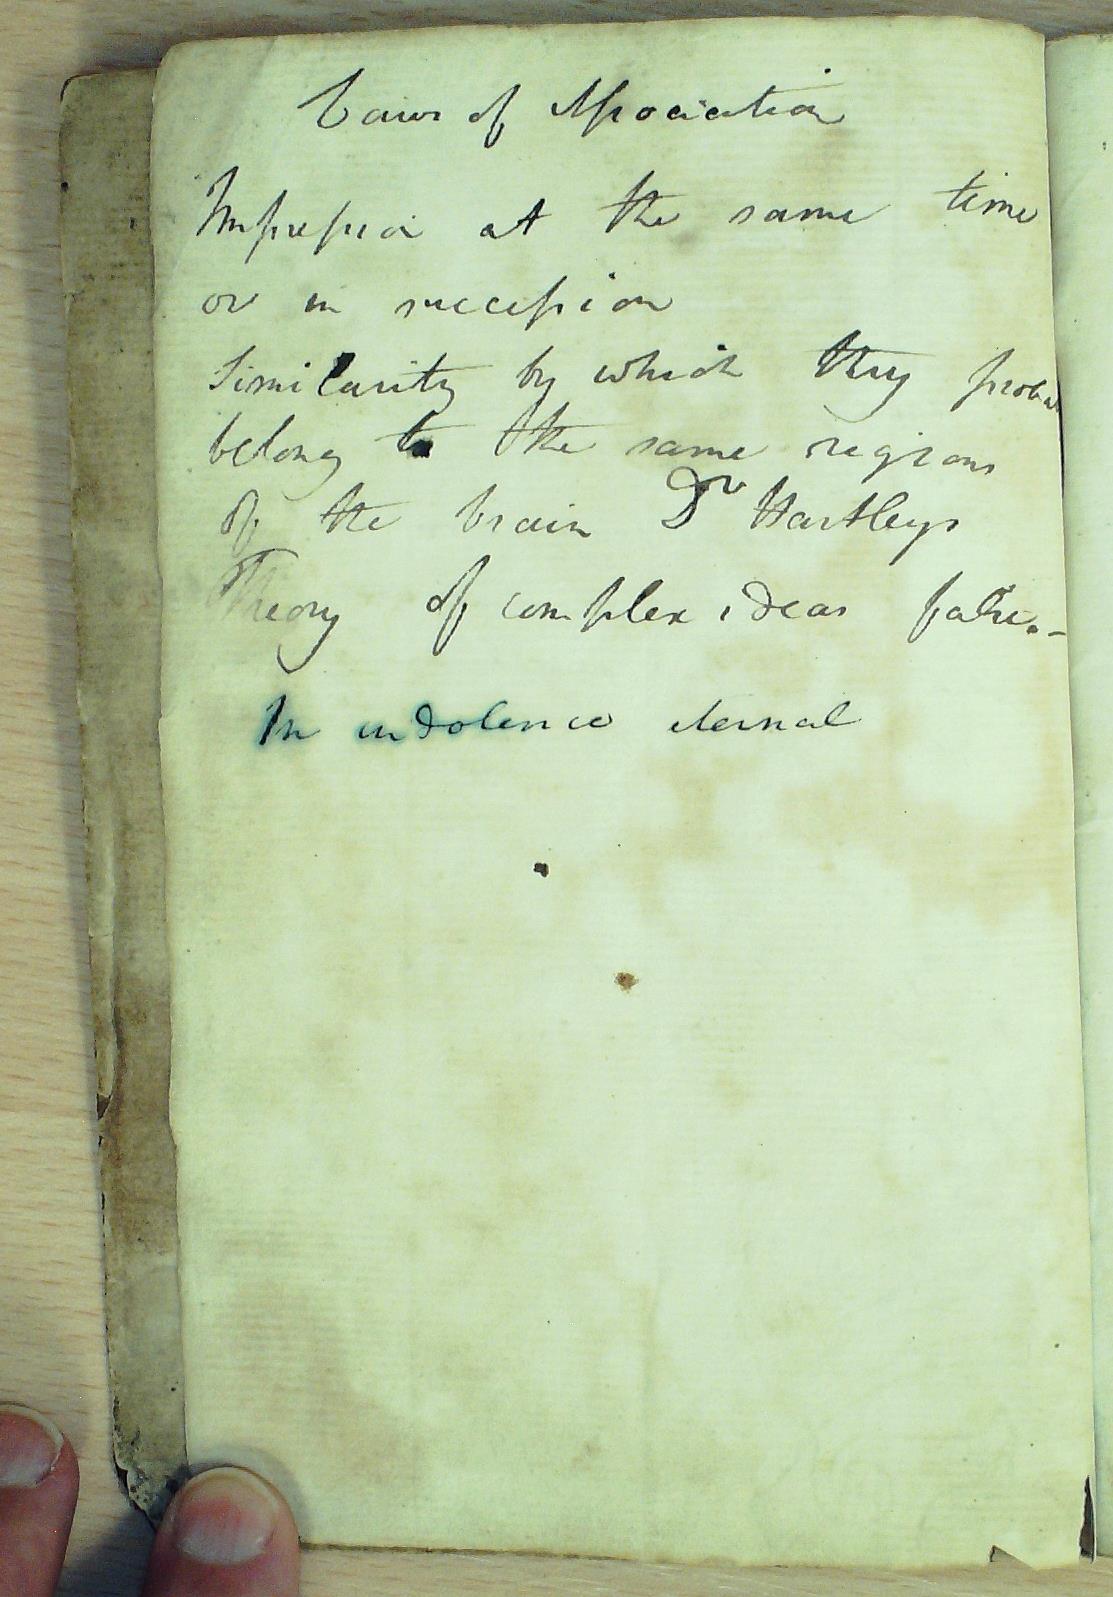 Laws of Association
Impression at the same time
or in succession
Similarity by which they probab
belong to the same regions
of the brain Dr Hartleys
Theory of complex ideas false.-
In indolence eternal